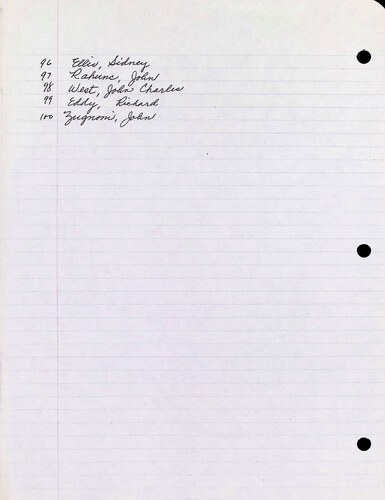 96 Ellis, Sidney
97 Rahunc, John
98 West, John Charles
99 Eddy, Richard
100 Zugnoni, John